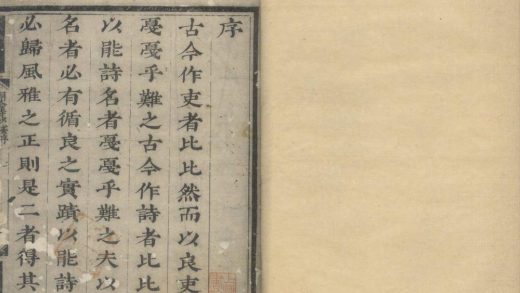 序
古今作吏者比比然而以良吏
戞戞乎難之古今作詩者比比
以能詩名者戞戞乎難之夫以
名者必有循良之實蹟以能詩
必歸風雅之正則是二者得其